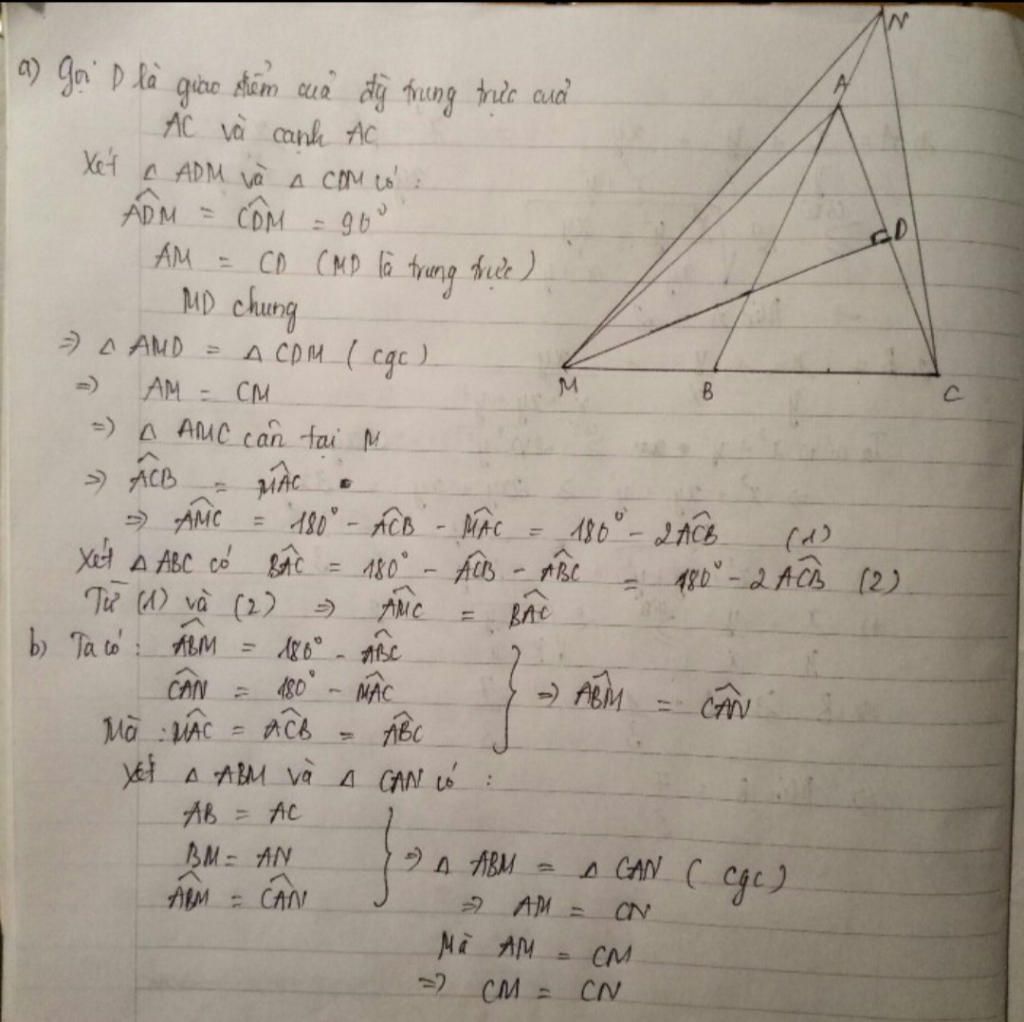 a) Gọi D là giao điểm của đg trung trực của
AC và cạnh AC
Xét △ ADM và △ CDM có :
\widehat{ADM} = \widehat{CDM} = 90°
AM = CD (MD là trung trực)
MD chung
=> △ AMD = △ CDM (cgc)
=> AM = CM
=> △ AMC cân tại M
=> \widehat{ACB} = \widehat{MAC}
=> \widehat{AMC} = 180° - \widehat{ACB} - \widehat{MAC} = 180° - 2\widehat{ACB} (1)
Xét △ ABC có \widehat{BAC} = 180° - \widehat{ACB} - \widehat{ABC} = 180° - 2\widehat{ACB} (2)
Từ (1) và (2) => \widehat{AMC} = \widehat{BAC}
b) Ta có : \widehat{ABM} = 180° - \widehat{ABC}
\widehat{CAN} = 180° - \widehat{MAC}
Mà : \widehat{MAC} = \widehat{ACB} = \widehat{ABC}
} => \widehat{ABM} = \widehat{CAN}
Xét △ ABM và △ CAN có :
AB = AC
BM = AN
\widehat{ABM} = \widehat{CAN}
} => △ ABM = △ CAN (cgc)
=> AM = CN
Mà AM = CM
=> CM = CN
N
A
D
M
B
C